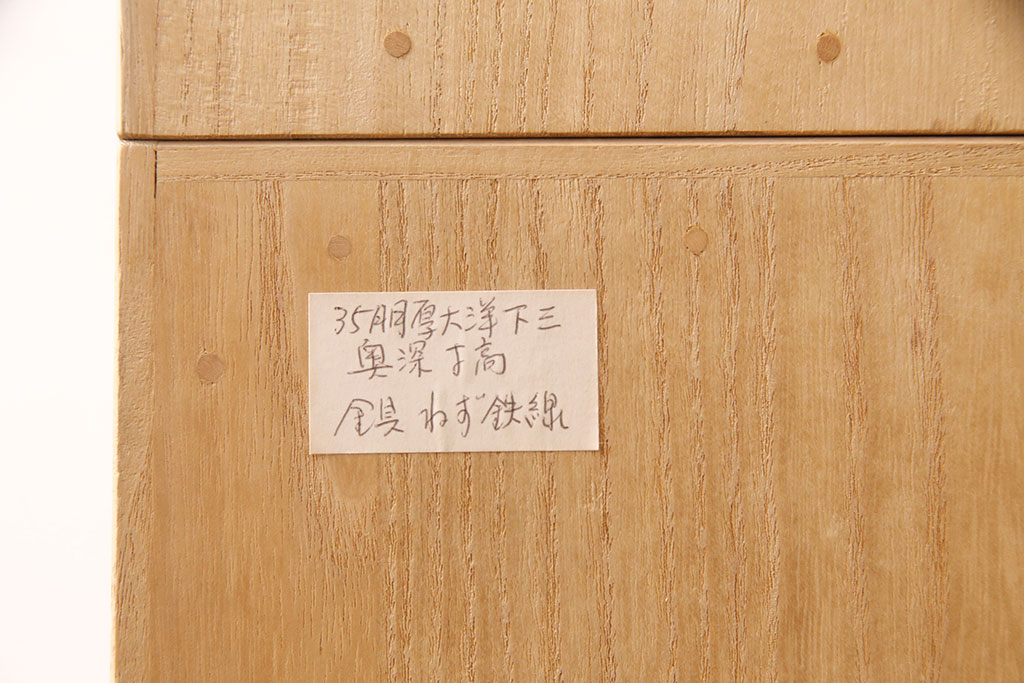 35胴厚大洋下三
奥深 才高
金具 ねず鉄線